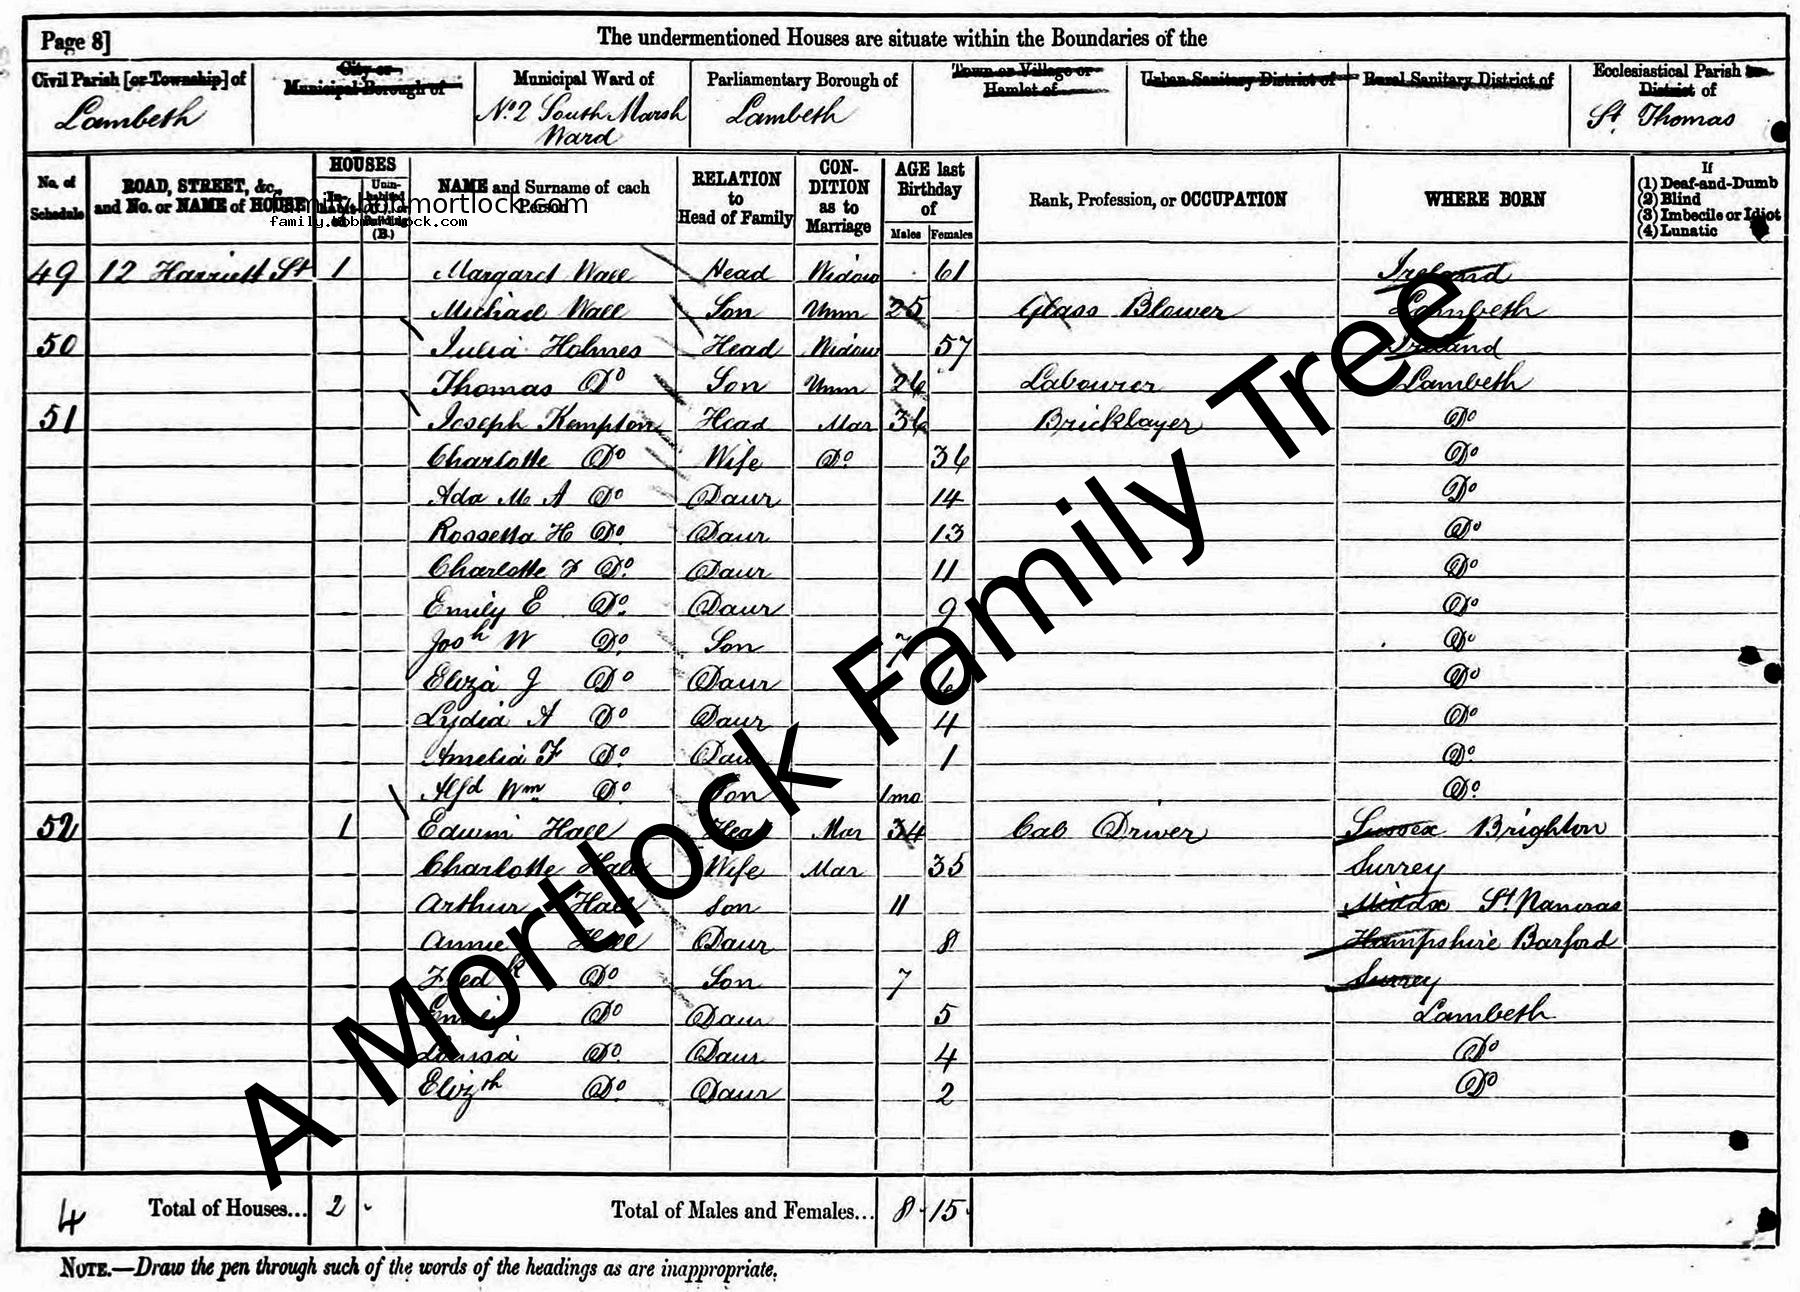 Page 8]
The undermentioned Houses are situate within the Boundaries of the
Civil Parish [or Township] of
Lambeth
City or Municipal Borough of
Municipal Ward of
No. 2 South Marsh Ward
Parliamentary Borough of
Lambeth
Town or Village or Hamlet of
Urban Sanitary District of
Rural Sanitary District of
Ecclesiastical Parish or District of
St. Thomas
No. of Schedule
ROAD, STREET, &c., and No. or NAME of HOUSE
HOUSES
(B.)
NAME and Surname of each Person
RELATION to Head of Family
CONDITION as to Marriage
AGE last Birthday of
Males Females
Rank, Profession, or OCCUPATION
WHERE BORN
If
(1) Deaf-and-Dumb
(2) Blind
(3) Imbecile or Idiot
(4) Lunatic
family.bobmortlock.com
family.bobmortlock.com
49 12 Harriett St 1 Margaret Wall Head Widow 61 Ireland
Michael Wall Son Unm 25 Glass Blower Lambeth
50 Julia Holmes Head Widow 57 Ireland
Thomas Do Son Unm 26 Labourer Lambeth
51 Joseph Kempton Head Mar 36 Bricklayer Do
Charlotte Do Wife Do 36 Do
Ada M A Do Daur 14 Do
Rossetta H Do Daur 13 Do
Charlotte F Do Daur 11 Do
Emily E Do Daur 9 Do
Josh W Do Son 7 Do
Eliza J Do Daur 6 Do
Lydia A Do Daur 4 Do
Amelia F Do Daur 1 Do
Alfd Wm Do Son 1mo Do
52 1 Edwin Hall Head Mar 34 Cab Driver Sussex Brighton
Charlotte Hall Wife Mar 35 Surrey
Arthur Hall Son 11 Middx St. Pancras
Annie Hall Daur 8 Hampshire Barford
Fredk Do Son 7 Surrey
Emily Do Daur 5 Lambeth
Louisa Do Daur 4 Do
Elizth Do Daur 2 Do
4 Total of Houses... 2 - Total of Males and Females... 8 15
NOTE.—Draw the pen through such of the words of the headings as are inappropriate.
A Mortlock Family Tree